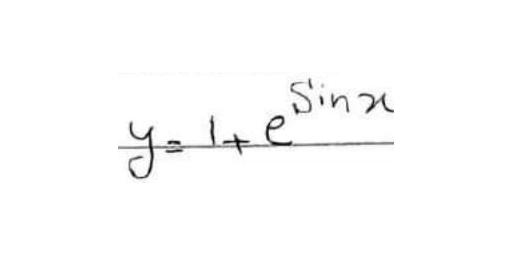 y = 1 + e^{Sin x}